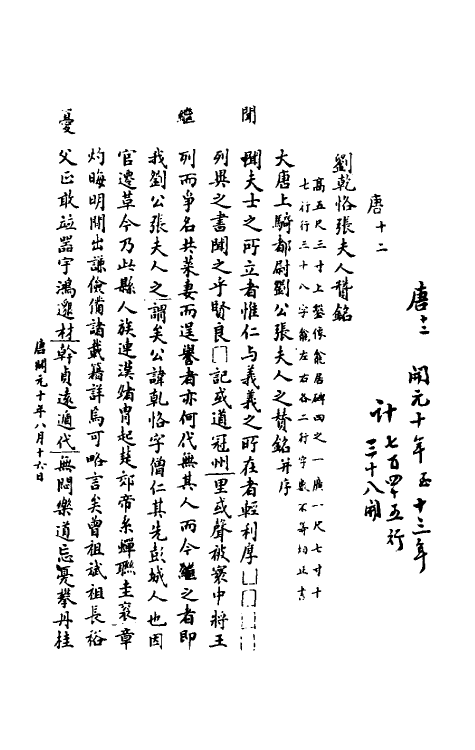 唐十二 開元十年至十三年
計七百四十五行
三十八開
唐十二
劉乾恪張夫人贊銘
高五尺三寸上鑿像龕居碑四之一廣一尺七寸十
七行行三十八字龕左右各二行字數不等均正書
大唐上騎都尉劉公張夫人之贊銘并序
聞夫士之所立者惟仁与義義之所在者輕利厚□□□□
列異之書聞之乎賢良□記或道冠州里或聲被寰中將王
列而爭名共萊妻而逞譽者亦何代無其人而今繼之者即
我劉公張夫人之謂矣公諱乾恪字僧仁其先彭城人也因
官遷革今乃此縣人族連漢緒胄起楚郊帝系蟬聯圭袞章
灼晦明閒出謙儉備諸載籍詳焉可略言矣曾祖斌祖長裕
父正敢竝器宇鴻邈材幹貞遠遁代無悶樂道忘憂攀丹桂
聞
繼
憂
唐開元十年八月十六日